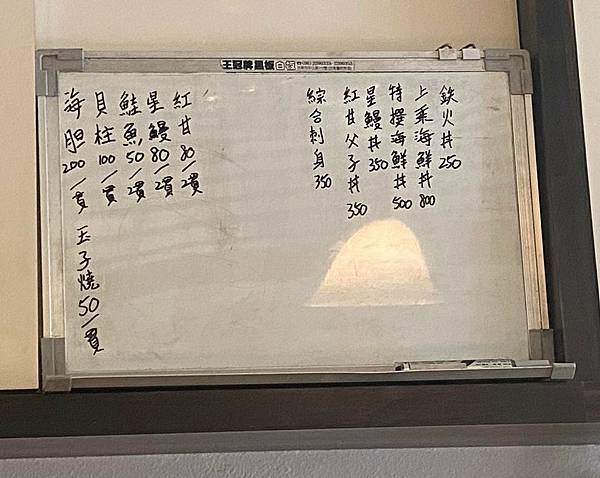 王冠牌黑板
鉄火丼 250
上乘海鮮丼 800
特撰海鮮丼 500
星鰻丼 350
紅甘父子丼 350
綜合刺身 350
紅甘 80/2貫
星鰻 80/2貫
鮭魚 50/2貫
貝柱 100/一貫
海胆 200/一貫 玉子燒 50/一貫